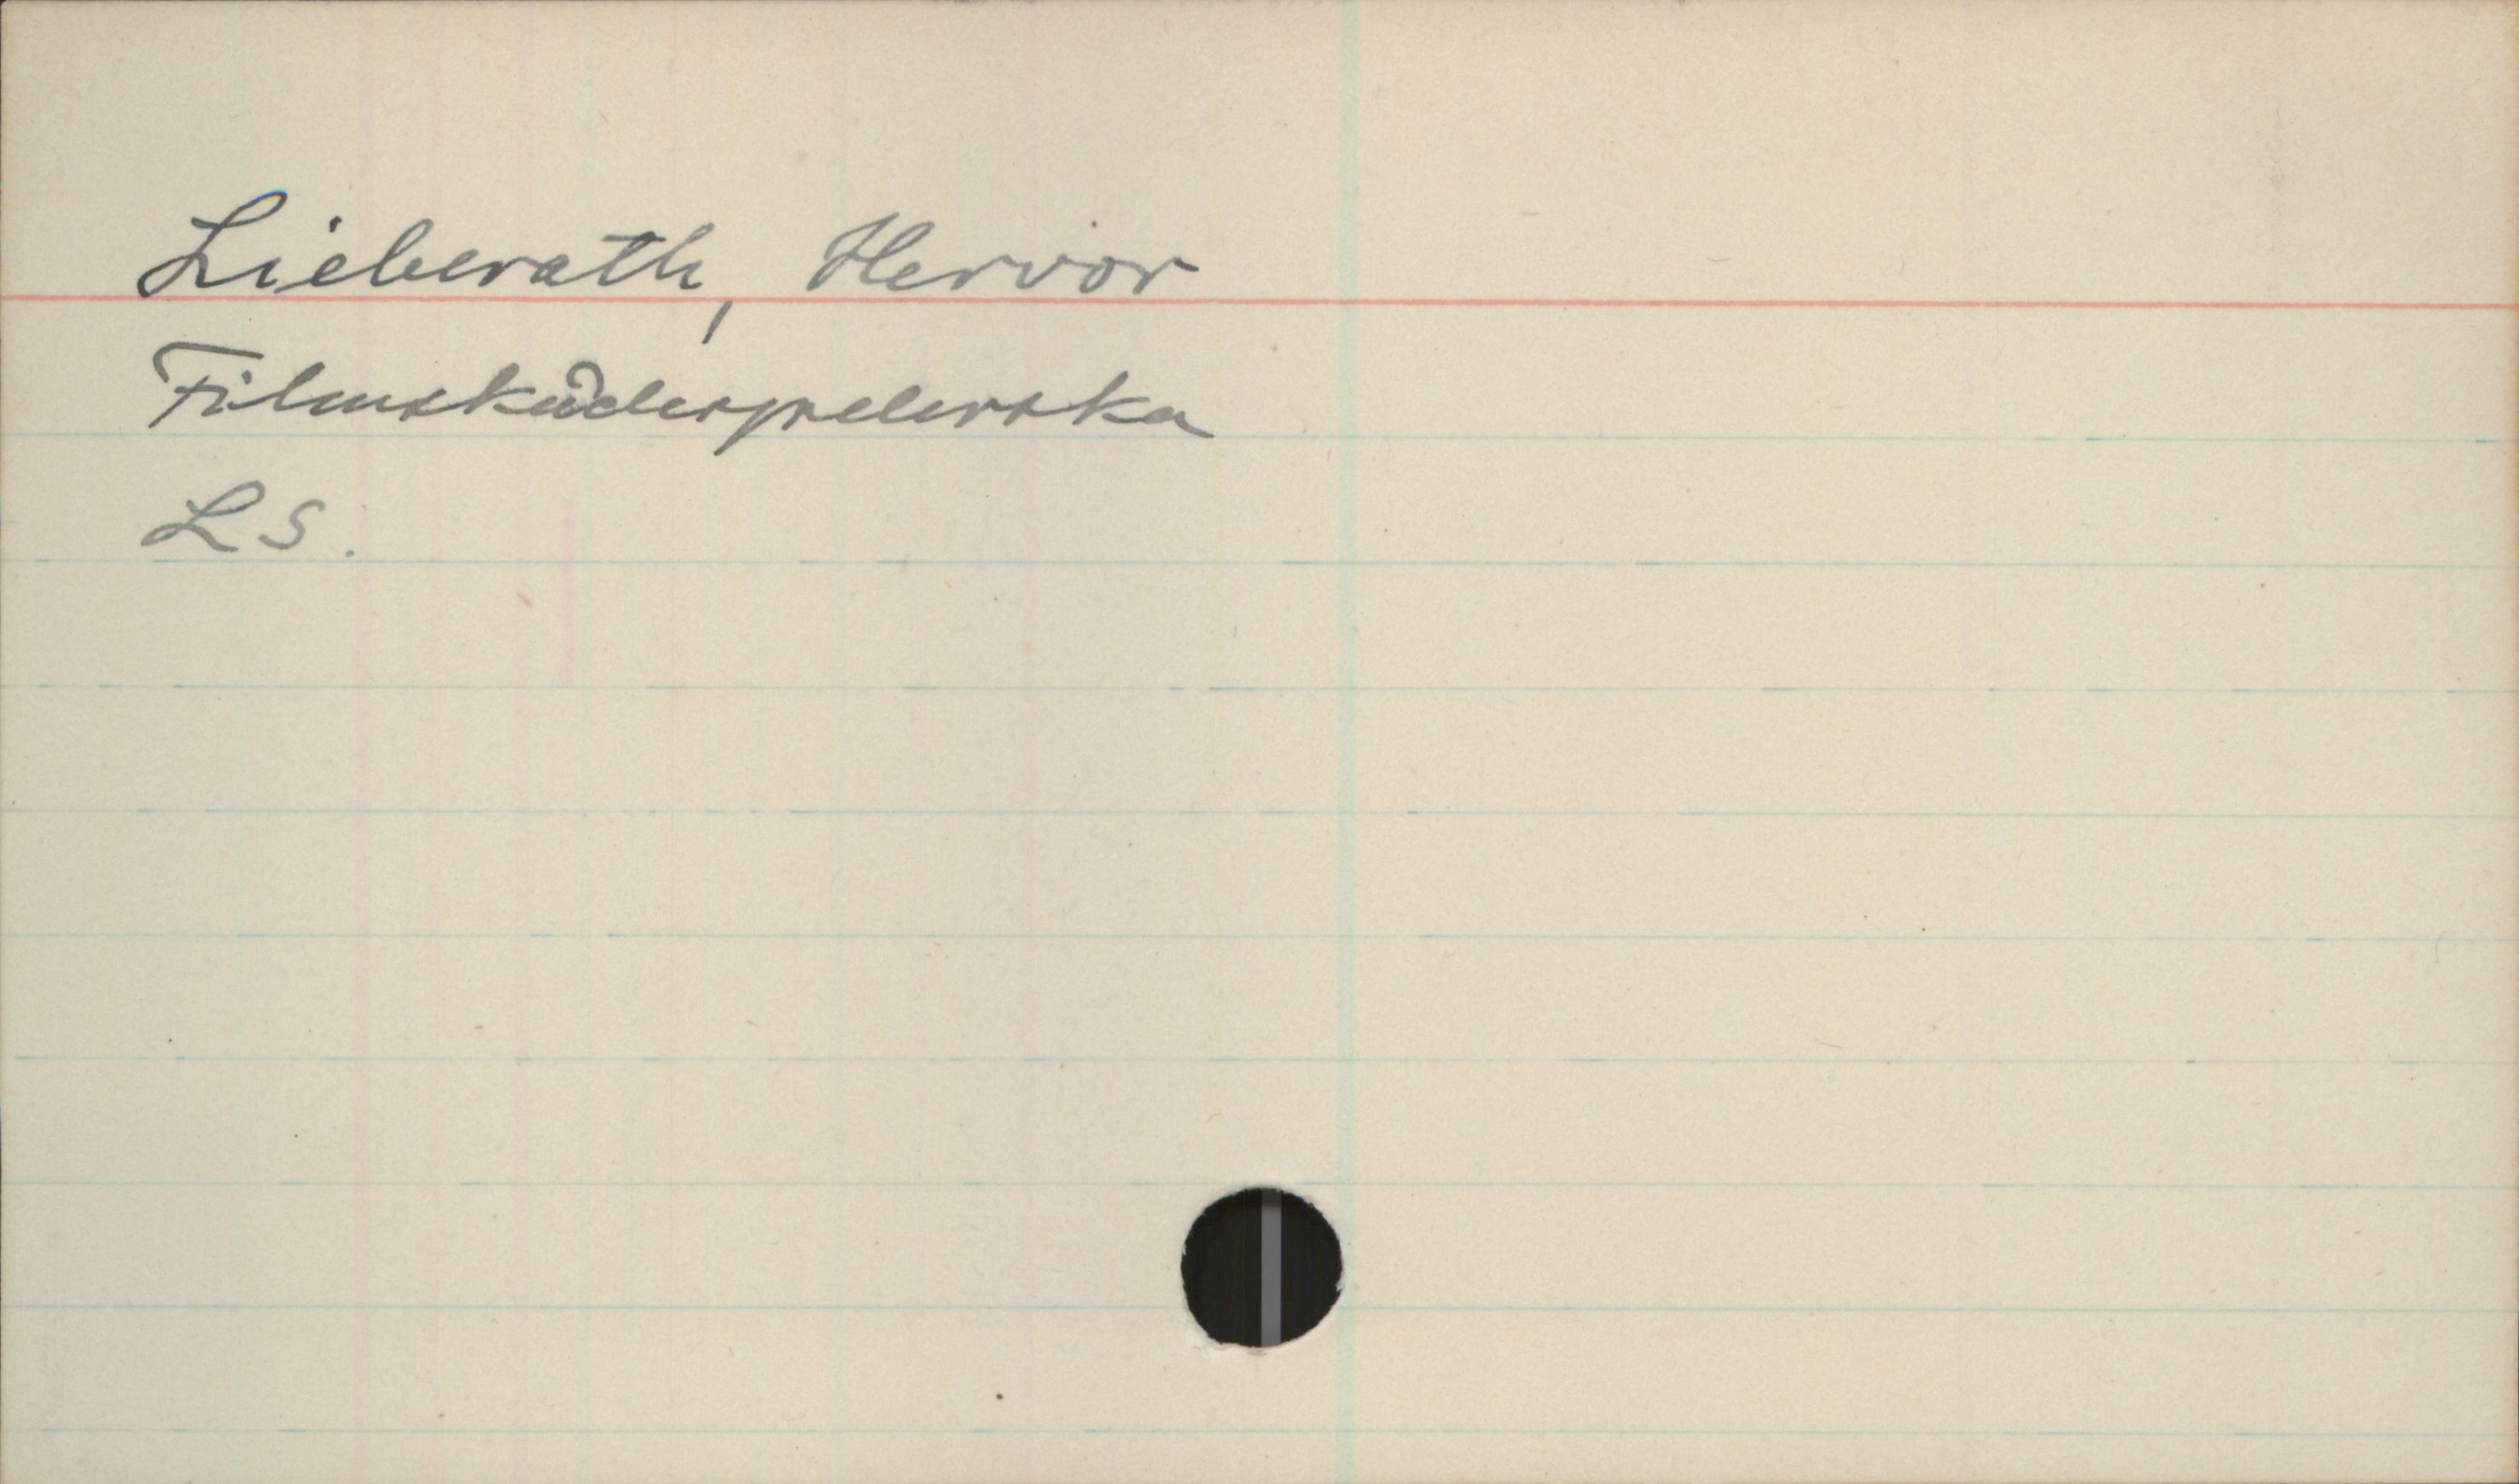 Lieberath, Hervor
Filmskådespelerska
LS.